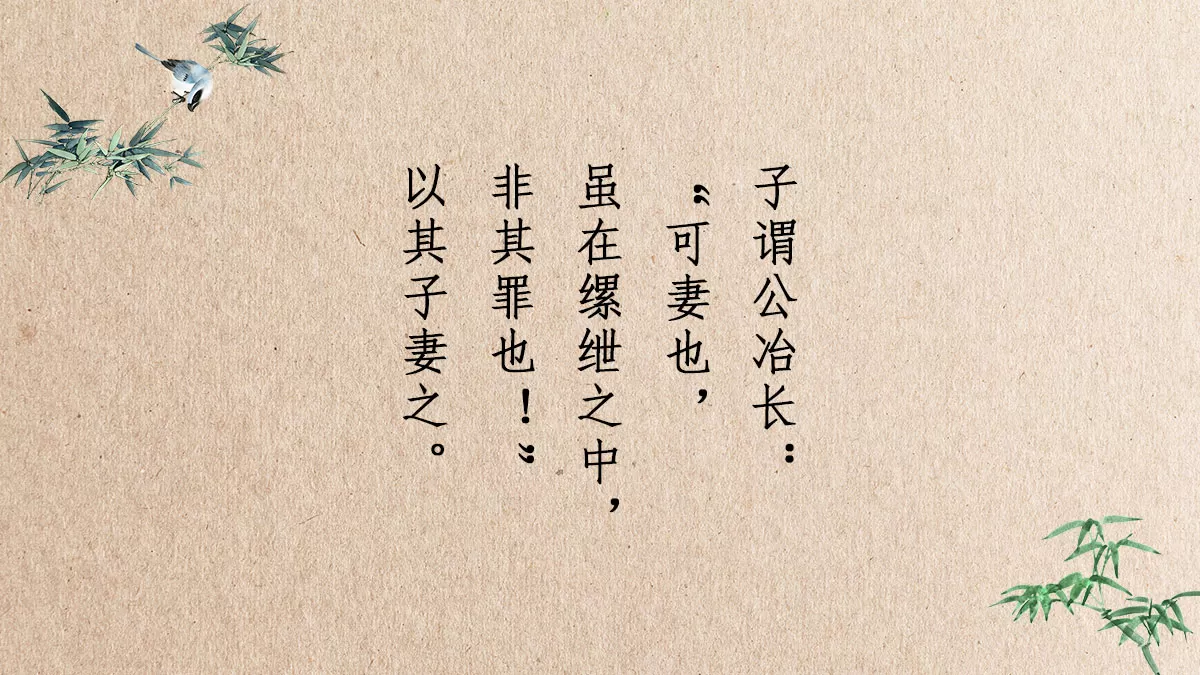 子谓公冶长：
“可妻也，
虽在缧绁之中，
非其罪也！”
以其子妻之。